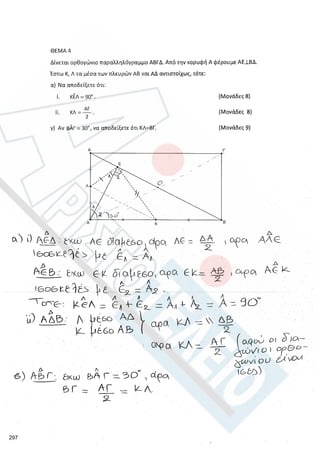 ΘΕΜΑ 4
Δίνεται ορθογώνιο παραλληλόγραμμο ΑΒΓΔ. Από την κορυφή Α φέρουμε ΑΕ⊥ΒΔ.
Έστω Κ, Λ τα μέσα των πλευρών ΑΒ και ΑΔ αντιστοίχως, τότε:
α) Να αποδείξετε ότι:
i. ΚÊΛ = 90°. (Μονάδες 8)
ii. ΚΛ = ΑΓ/2. (Μονάδες 8)
γ) Αν ΒÂΓ = 30°, να αποδείξετε ότι ΚΛ=ΒΓ. (Μονάδες 9)
Δ Γ
Ε
Λ
Α Κ Β
30°
α) i) ΑΕΔ: εχω ΛΕ διάμεσο, άρα ΛΕ = ΔΑ/2, αρα ΑΛΕ
ισοσκελές με Ê₁ = Â₁
ΑΕΒ: εχω ΕΚ διάμεσο, αρα ΕΚ = ΑΒ/2, αρα ΑΕΚ
ισοσκελές με Ê₂ = Â₂.
Τότε: ΚÊΛ = Ê₁ + Ê₂ = Â₁ + Â₂ = Â = 90°
ii) ΑΔΒ: Λ μέσο ΑΔ
Κ μέσο ΑΒ } αρα ΚΛ = \\ ΔΒ/2
αρα ΚΛ = ΑΓ/2 (αφού οι δια-
γώνιοι ορθο-
γωνίου είναι
ίσες)
β) ΑΒΓ: εχω ΒÂΓ = 30°, άρα
ΒΓ = ΑΓ/2 = ΚΛ
297